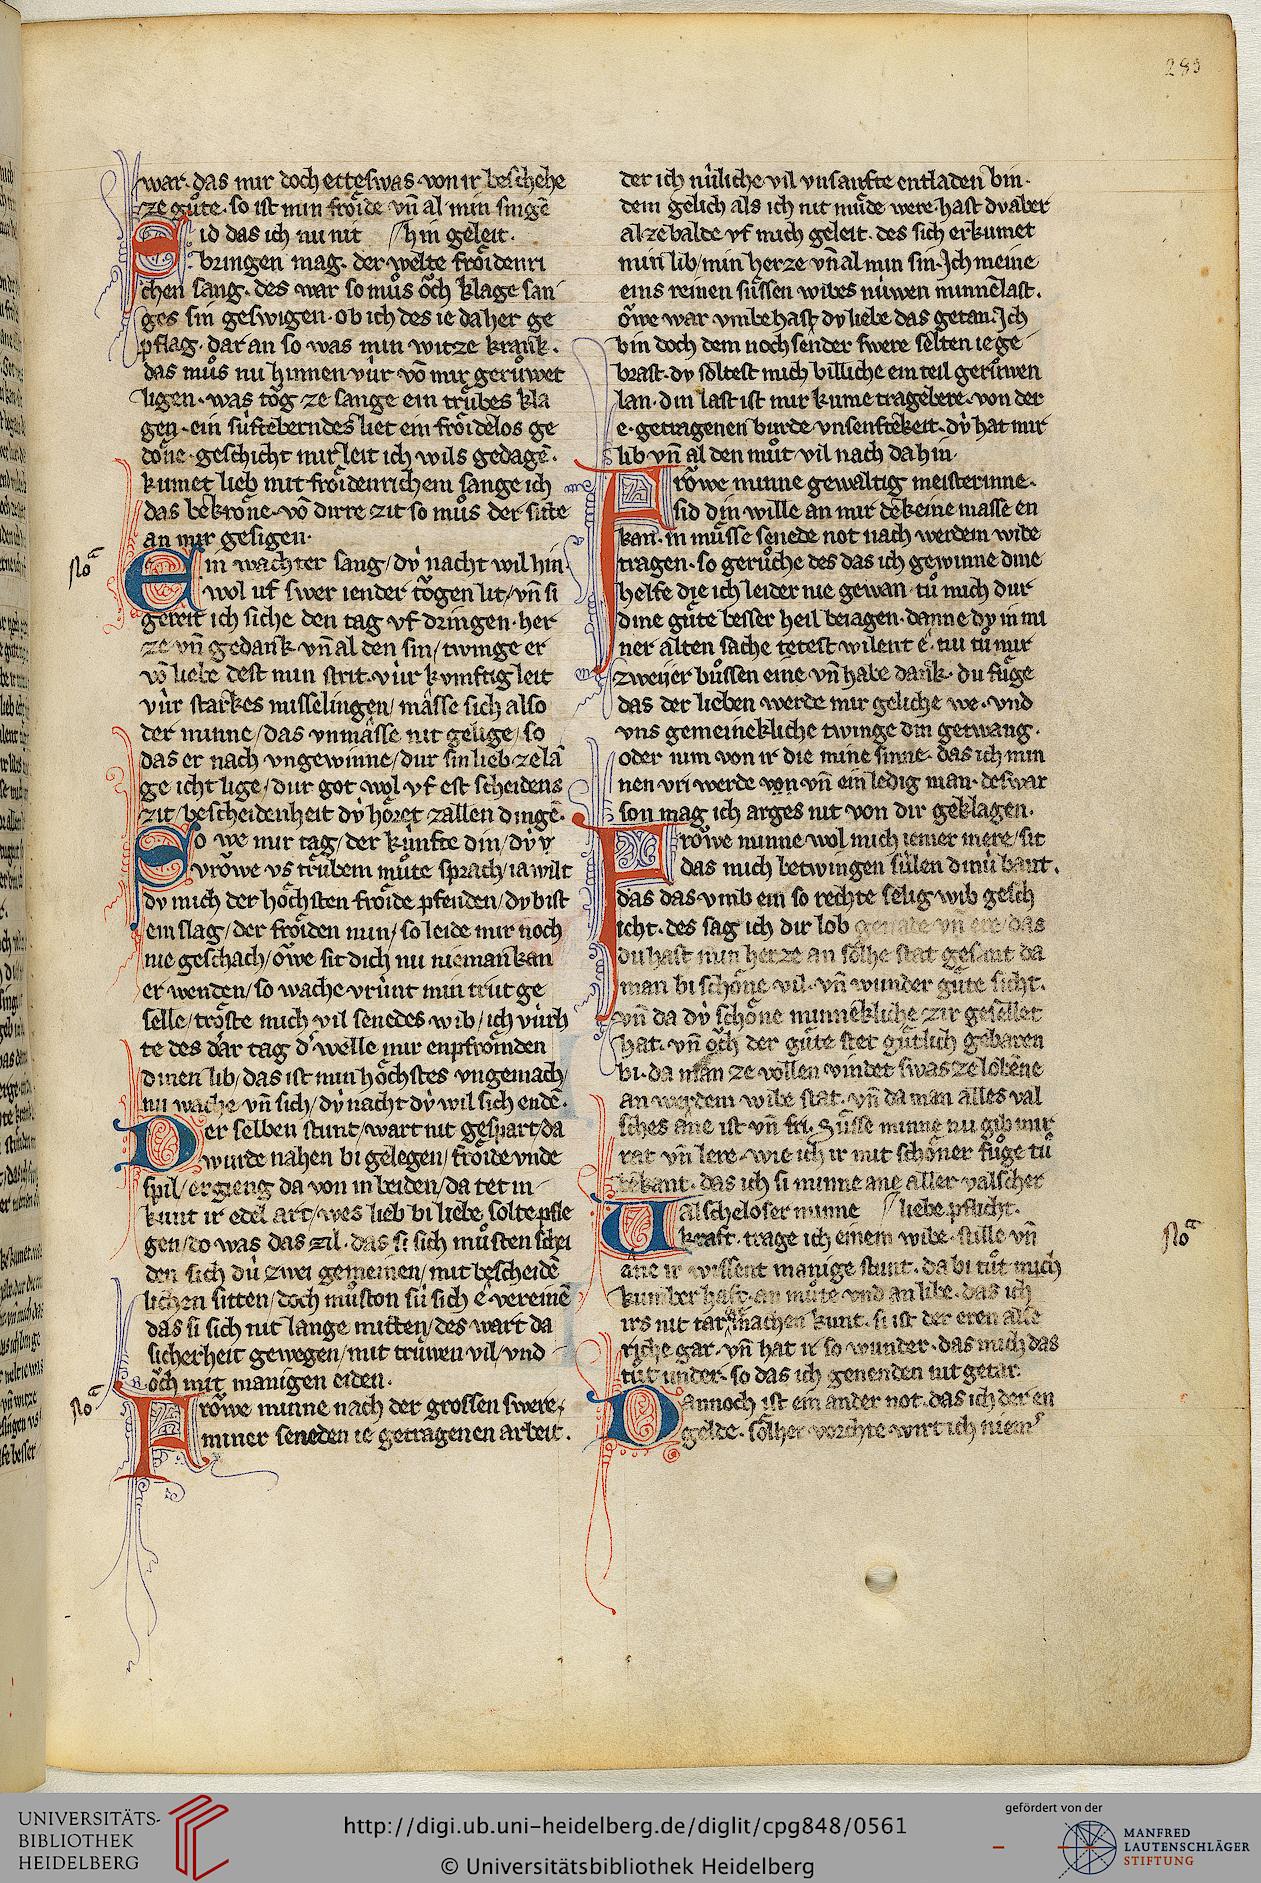 283
war. das mir doch etteswas von ir beschehe
ze guͦte. so ist min froͤide vn̄ al min singē
Sid das ich nu nit hin geleit.
bringen mag. der welte froͤidenri
chen sang. des war so muͦs oͮch klage san
ges sin geswigen. ob ich des ie da her ge
pflag. dar an so was min witze krank.
das muͦs nu hinnen vúr vō mir geruͦwet
ligen. was toͮg ze sange ein truͤbes kla
gen. ein súfteberndes liet ein froͤidelos ge
doͤne. geschicht mir leit ich wils gedagē.
kumet lieb mit froͤidenrichem sange ich
das bekroͤne. vō dirre zit so muͦs der sitte
an mir gesigen.
Noᵃ
Ein wachter sang/ dú nacht wil hin
wol uf swer iender tǒgen lit/ vn̄ si
gereit ich siche den tag vf dringen. her
ze vn̄ gedank vn̄ al den sin/ twinge er
vō liebe dest min strit. vúr kvmftig leit
vúr starkes misselingen/ mâsse sich also
der minne/ das vnmâsse nit gelige/ so
das er nach vngewinne/ dur sin lieb ze lā
ge icht lige/ dur got wol vf est scheidens
zit/ bescheidenheit dú hoͤret zallen dingē.
So we mir tag/ der kúnfte din/ dú v
vroͮwe vs truͤbem muͦte sprach/ ia wilt
dv mich der hoͤchsten froͤide pfenden/ dv bist
ein slag/ der froͤiden min/ so leide mir noch
nie geschach/ oͮwe sit dich nu nieman kan
er wenden/ so wache vrúnt min trut ge
selle/ troͤste mich vil senedes wib/ ich vúrh
te des dar tag d' welle mir enpfroͤmden
dinen lib/ das ist min hoͤchstes vngemach/
nu wache vn̄ sich/ dú nacht dú wil sich endē.
Der selben stunt/ wart nit gespart/ da
wurde nahen bi gelegen/ froͤide vnde
spil/ ergieng da von in beiden/ da tet in
kunt ir edel art/ wes lieb bi liebe solte pfle
gen/ do was das zil. das si sich muͦsten schei
den sich dú zwei gemeinen/ mit bescheidē
lichen sitten/ doch muͦston sú sich ê vereinē
das si sich nit lange mitten/ des wart da
sicherheit gewegen/ mit trúwen vil/ vnd
oͮch mit manigen eiden.
Noᵃ
Froͮwe minne nach der grossen swere/
miner seneden ie getragenen arbeit.
der ich núliche vil vnsanfte entladen bin.
dem gelich als ich nit muͤde were hast dv aber
al ze balde vf mich geleit. des sich erkumet
min lib/ min herze vn̄ al min sin. Ich meine
eins reinen suͤssen wibes núwen minne last.
oͮwe war vmbe hast dv liebe das getan. Ich
bin doch dem noch sender swere selten ie ge
brast. dv soltest mich billiche ein teil geruͦwen
lan. din last ist mir kume tragebere. von der
e. getragenen burde vnsenftekeit. dú hat mir
lib vn̄ al den muͦt vil nach da hin.
Froͮwe minne gewaltig meisterinne.
sid din wille an mir dekeine masse en
kan. in muͤsse senede not nach werdem wibe
tragen. so geruͦche des das ich gewinne dine
helfe die ich leider nie gewan. tuͦ mich dur
dine guͤte besser heil beiagen. danne dv in mi
ner alten sache tetest wilent ê. nu tuͦ mir
zweijer buͦssen eine vn̄ habe dank. du fuͤge
das der lieben werde mir geliche we. vnd
vns gemeinekliche twinge din getwang.
oder nim von ir die mine sinne. das ich min
nen vri werde von vn̄ ein ledig man. deswar
son mag ich arges nit von dir geklagen.
Froͮwe minne wol mich iemer mere/ sit
das mich betwingen súlen dinú bant.
das das vmb ein so rechte selig wib gesch
icht. des sag ich dir lob genade vn̄ ere/ das
du hast min herze an solhe stat gesant da
man bi schoͤne vil. vn̄ wunder guͤte sicht.
vn̄ da dú schoͤne minnekliche zir gesellet
hat. vn̄ oͮch der guͤte stet guͤtlich gebaren
bi. da man ze vollen vindet swas ze lobēne
an werdem wibe stat. vn̄ da man alles val
sches ane ist vn̄ fri. Suͤsse minne nu gib mir
rat vn̄ lere. wie ich ir mit schoͤner fuͦge tuͦ
bekant. das ich si minne ane aller valscher
liebe pflicht.
Valscheloser minne
kraft. trage ich einem wibe. stille vn̄
Noᵃ
ane ir wissent manige stunt. da bi tuͦt mich
kumber haft. an muͦte vnd an libe. das ich
irs nit tar machen kunt. si ist der eren alse
riche gar. vn̄ hat ir so wunder. das mich das
tuͦt under. so das ich genenden nit getar.
Dannoch ist ein ander not. das ich der en
gelde. solher vorchte wirt ich niem'
UNIVERSITÄTS-
BIBLIOTHEK
HEIDELBERG
http://digi.ub.uni-heidelberg.de/diglit/cpg848/0561
© Universitätsbibliothek Heidelberg
gefördert von der
MANFRED
LAUTENSCHLÄGER
STIFTUNG